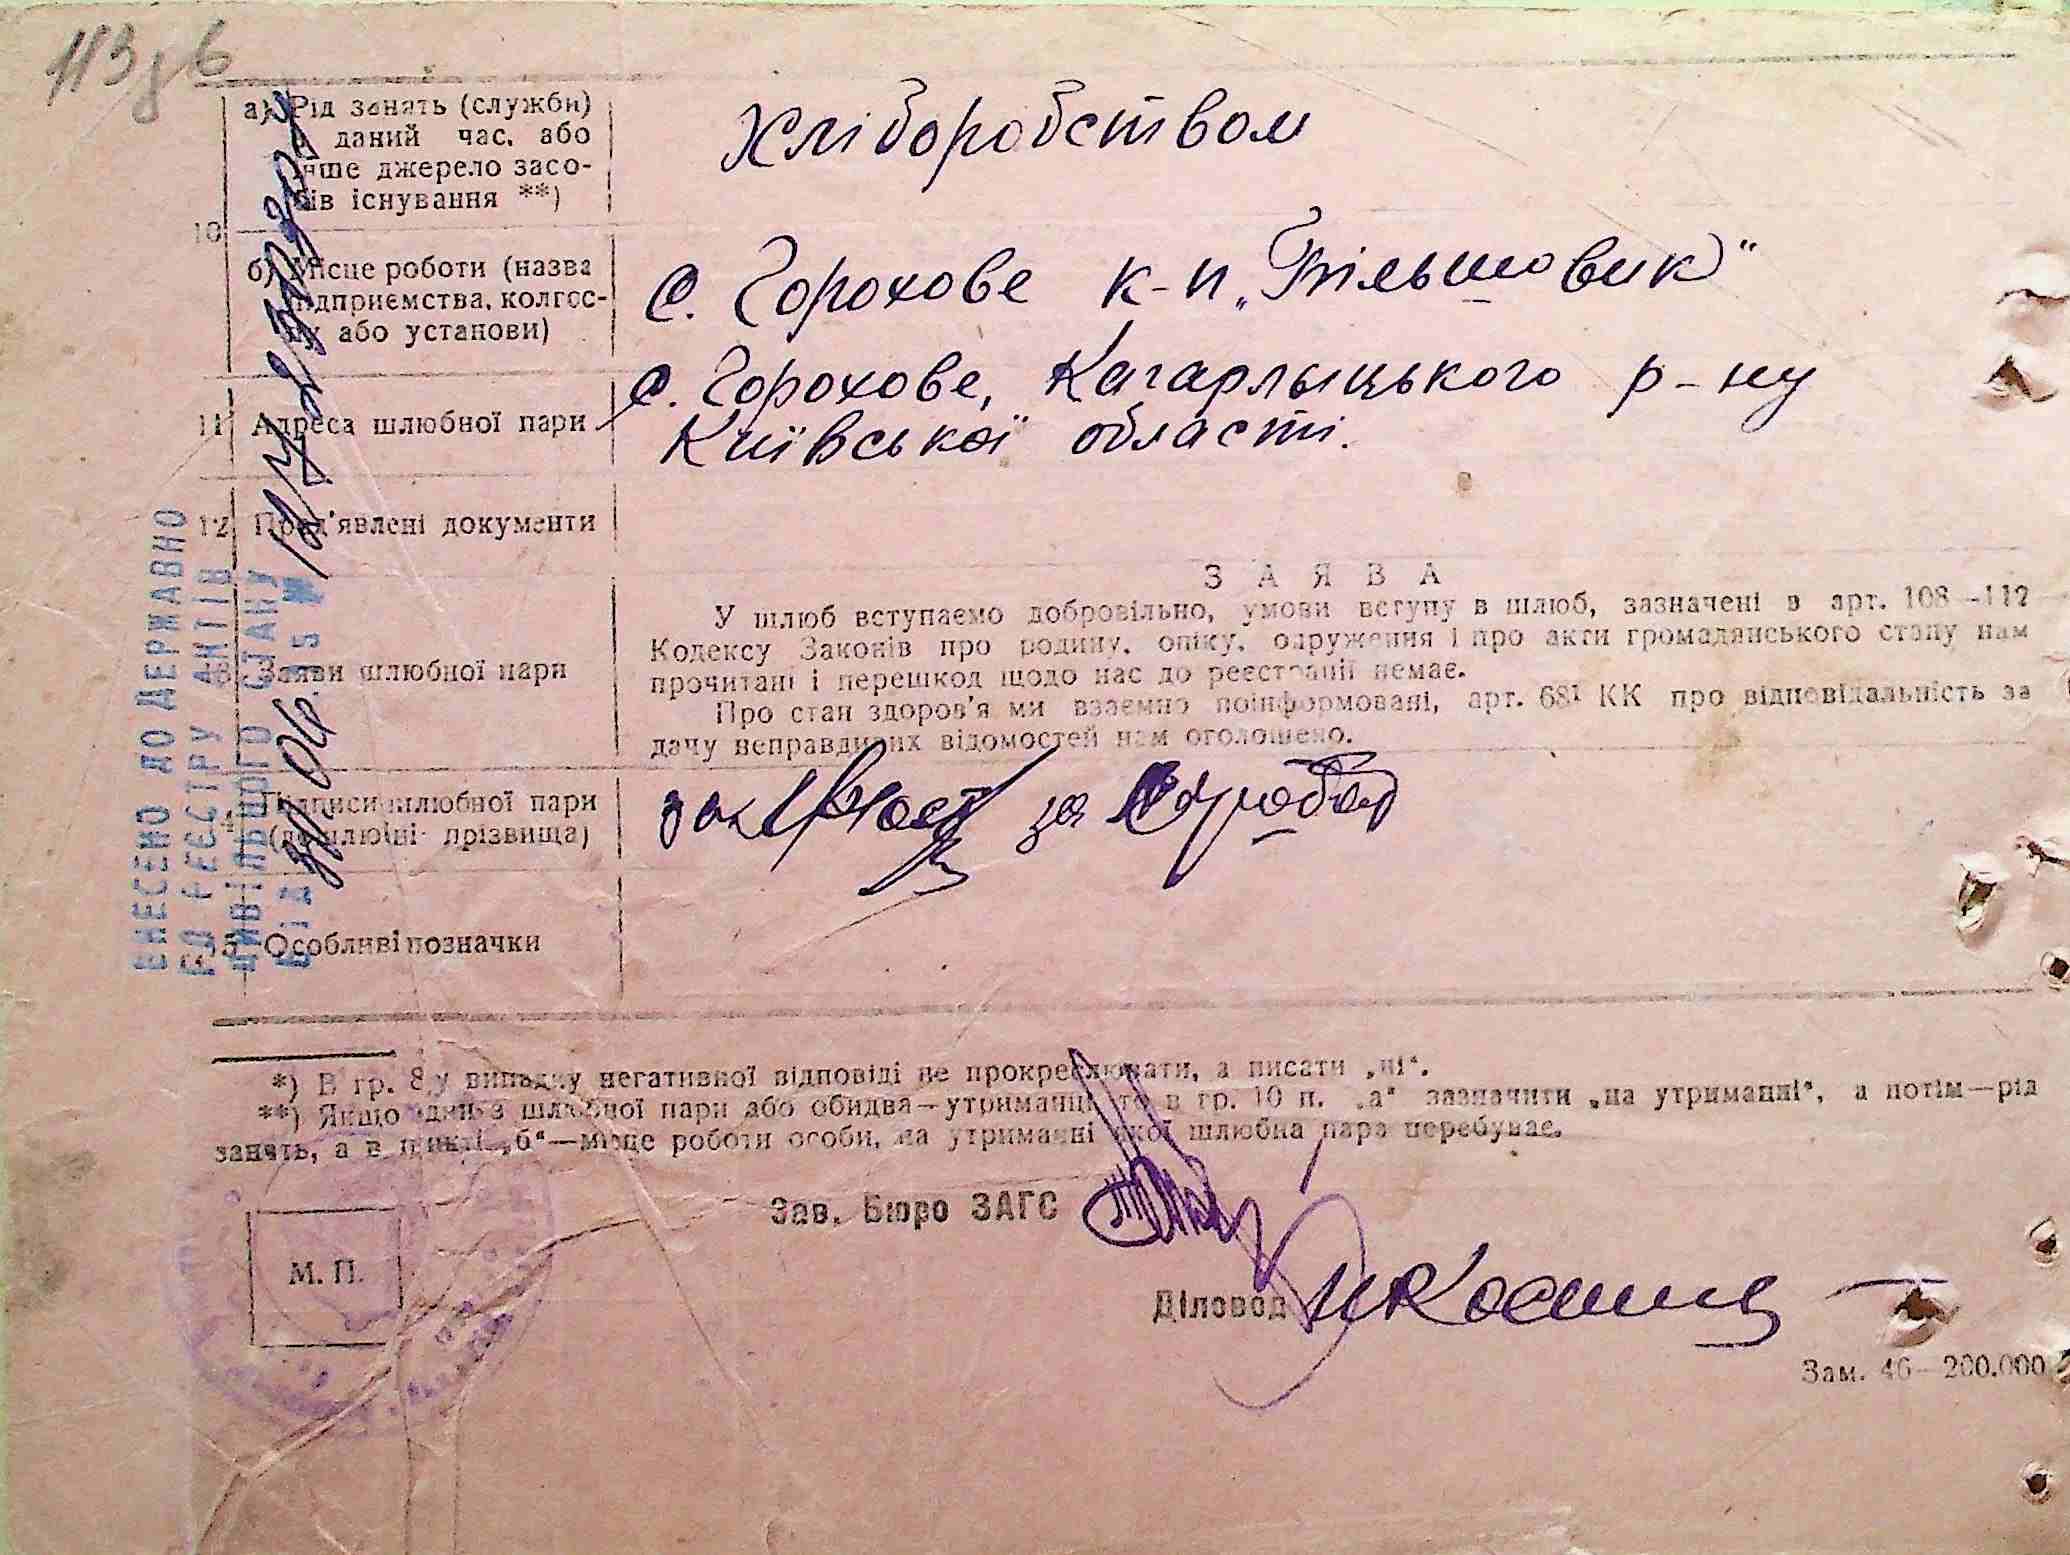 113
а) Рід занять (служби)
даний час, або
інше джерело засо-
бів існування **)
Хліборобством
10
б) Місце роботи (назва
підприємства, колгос-
пу або установи)
с. Горохове к-п „Більшовик"
11 Адреса шлюбної пари
с. Горохове, Кагарлыцького р-ну
Київської області.
12 Пред'явлені документи
ЗАЯВА
У шлюб вступаємо добровільно, умови вступу в шлюб, зазначені в арт. 108—112
Кодексу Законів про родину, опіку, одруження і про акти громадянського стану нам
прочитані і перешкод щодо нас до реєстрації немає.
Про стан здоров'я ми взаємно поінформовані, арт. 68¹ КК про відповідальність за
дачу неправдивих відомостей нам оголошено.
Заяви шлюбної пари
Підписи шлюбної пари
(дошлюбні прізвища)
за
Особливі позначки
ВНЕСЕНО ДО ДЕРЖАВНО
ГО РЕЄСТРУ АКТІВ
ЦИВІЛЬНОГО СТАНУ
ВІД №
*) В гр. 8 у випадку негативної відповіді не прокреслювати, а писати „ні".
**) Якщо один з шлюбної пари або обидва—утриманці, то в гр. 10 п. „а" зазначити „на утриманні", а потім—рід
занять, а в пункті „б"—місце роботи особи, на утриманні якої шлюбна пара перебуває.
Зав. Бюро ЗАГС
М. П.
Діловод
Зам. 46—200.000